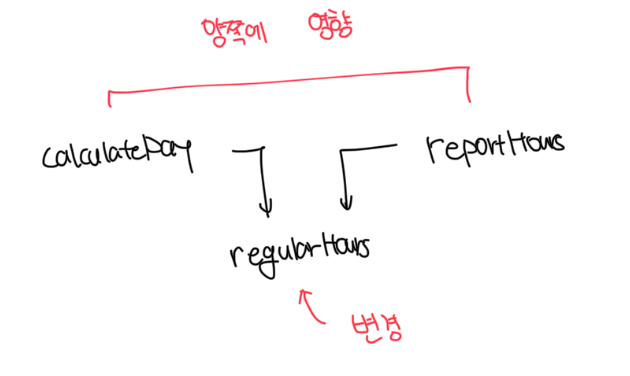 양쪽에 영향
calculatePay reportHours
regularHours
변경